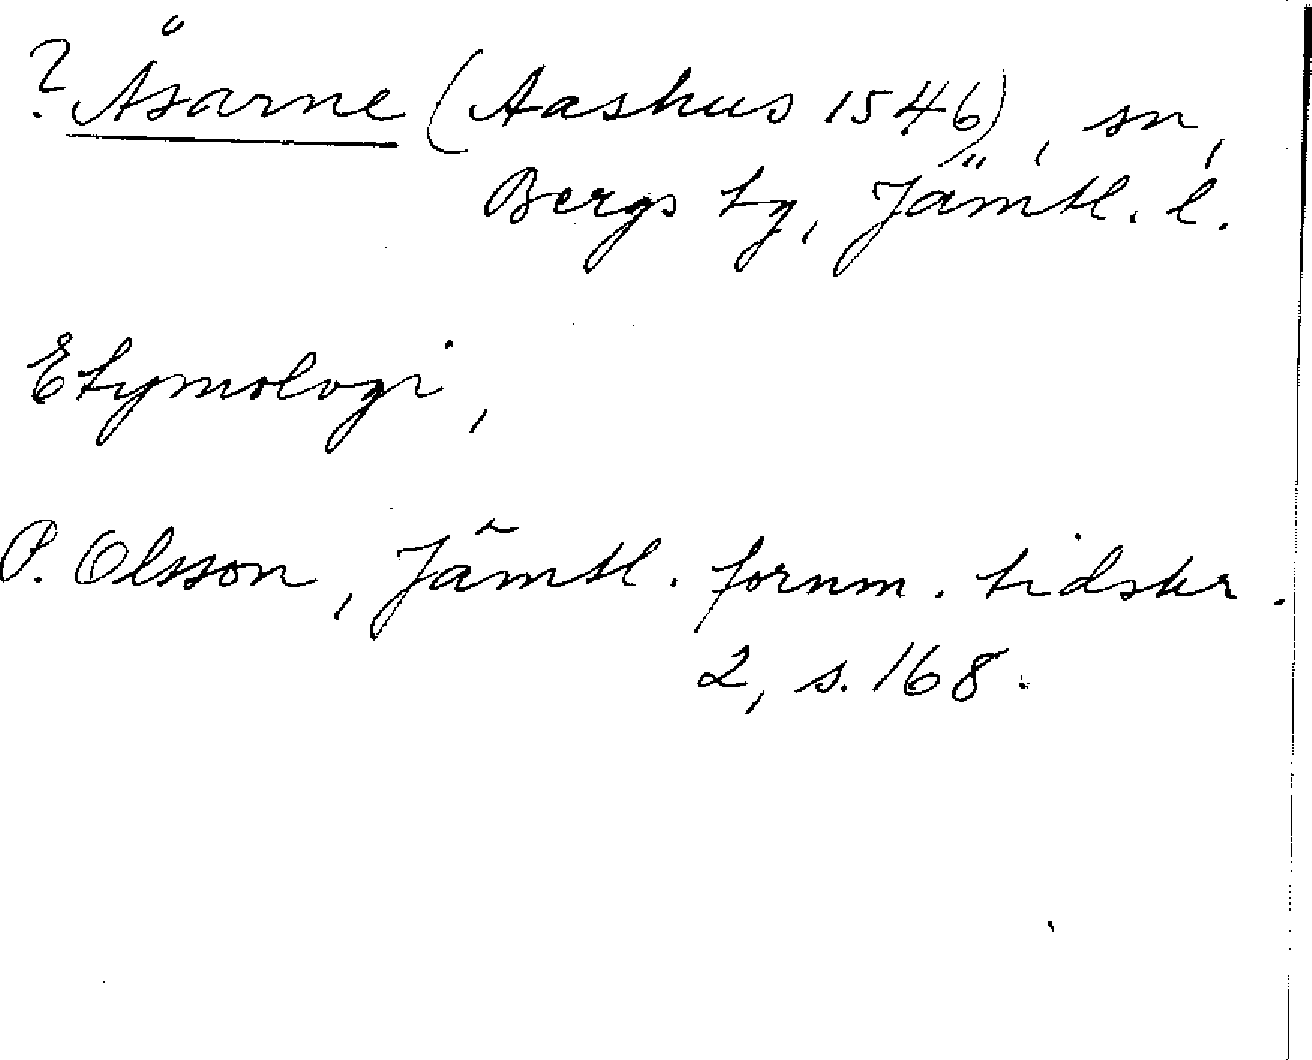 ? Åsarne (Aashus 1546), sn,
Bergs tg, Jämtl. l.
Etymologi,
P. Olsson, Jämtl. fornm. tidskr.
2, s. 168.